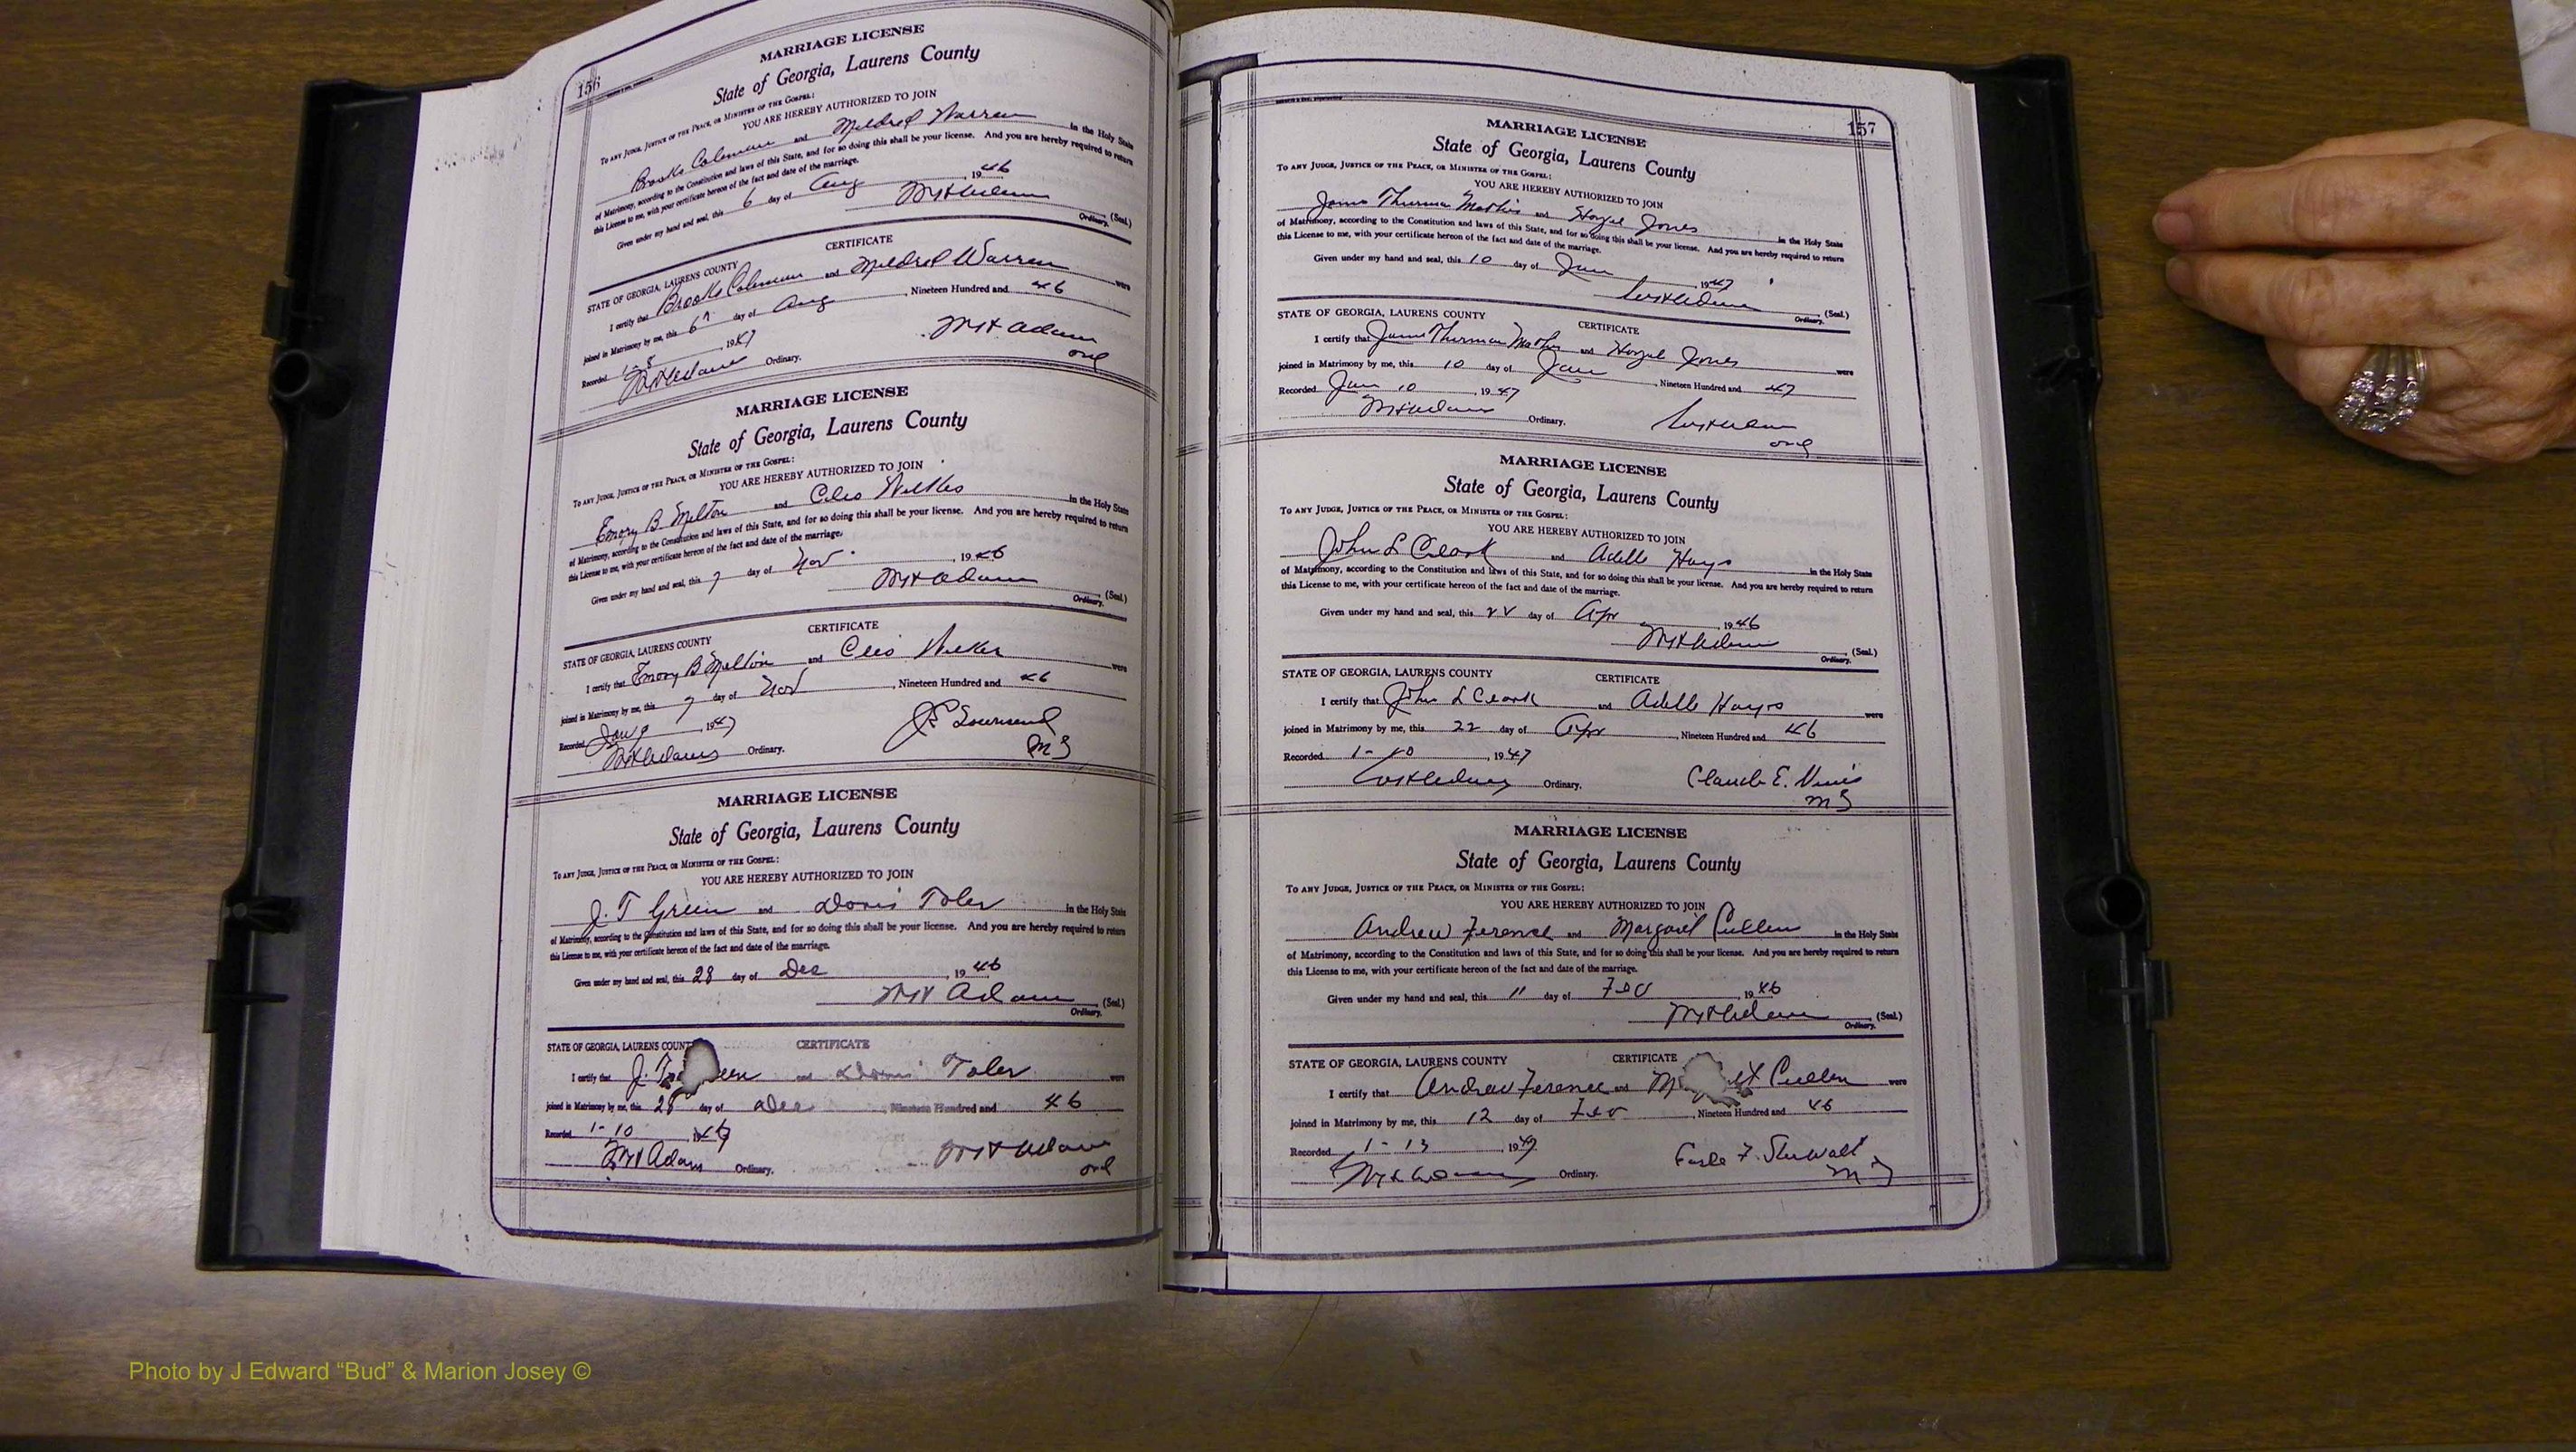 156
MARRIAGE LICENSE
State of Georgia, Laurens County
To any Judge, Justice of the Peace, or Minister of the Gospel:
YOU ARE HEREBY AUTHORIZED TO JOIN
Brooks Coleman and Mildred Warren in the Holy State
of Matrimony, according to the Constitution and laws of this State, and for so doing this shall be your license. And you are hereby required to return
this License to me, with your certificate hereon of the fact and date of the marriage.
Given under my hand and seal, this 6 day of Aug, 1946
(Seal.)
Ordinary.
CERTIFICATE
STATE OF GEORGIA, LAURENS COUNTY
I certify that Brooks Coleman and Mildred Warren were
joined in Matrimony by me, this 6 day of Aug, Nineteen Hundred and 46
Recorded 1-8, 1947
Adams Ordinary.
Adams
ord
MARRIAGE LICENSE
State of Georgia, Laurens County
To any Judge, Justice of the Peace, or Minister of the Gospel:
YOU ARE HEREBY AUTHORIZED TO JOIN
Emory B. Melton and Cleo Wilkes in the Holy State
of Matrimony, according to the Constitution and laws of this State, and for so doing this shall be your license. And you are hereby required to return
this License to me, with your certificate hereon of the fact and date of the marriage.
Given under my hand and seal, this 7 day of Nov, 1946
Adams (Seal.)
Ordinary.
CERTIFICATE
STATE OF GEORGIA, LAURENS COUNTY
I certify that Emory B Melton and Cleo were
joined in Matrimony by me, this 7 day of Nov, Nineteen Hundred and 46
Recorded Jan 1947
Adams Ordinary.
Townsend
MG
MARRIAGE LICENSE
State of Georgia, Laurens County
To any Judge, Justice of the Peace, or Minister of the Gospel:
YOU ARE HEREBY AUTHORIZED TO JOIN
J. T Green and Doris Toler in the Holy State
of Matrimony, according to the Constitution and laws of this State, and for so doing this shall be your license. And you are hereby required to return
this License to me, with your certificate hereon of the fact and date of the marriage.
Given under my hand and seal, this 28 day of Dec, 1946
Adams (Seal.)
Ordinary.
STATE OF GEORGIA, LAURENS COUNT CERTIFICATE
I certify that J. T een and Doris Toler were
joined in Matrimony by me, this 28 day of Dec, Nineteen Hundred and 46
Recorded 1-10, 1947
Adams Ordinary.
Adams
ord
157
MARRIAGE LICENSE
State of Georgia, Laurens County
To any Judge, Justice of the Peace, or Minister of the Gospel:
YOU ARE HEREBY AUTHORIZED TO JOIN
James Thurman Mathis and Hazel Jones in the Holy State
of Matrimony, according to the Constitution and laws of this State, and for so doing this shall be your license. And you are hereby required to return
this License to me, with your certificate hereon of the fact and date of the marriage.
Given under my hand and seal, this 10 day of Jan, 1947
(Seal.)
Ordinary.
STATE OF GEORGIA, LAURENS COUNTY CERTIFICATE
I certify that James Thurman Mathis and Hazel Jones were
joined in Matrimony by me, this 10 day of Jan, Nineteen Hundred and 47
Recorded Jan 10, 1947
Adams Ordinary.
ord
MARRIAGE LICENSE
State of Georgia, Laurens County
To any Judge, Justice of the Peace, or Minister of the Gospel:
YOU ARE HEREBY AUTHORIZED TO JOIN
John L Clark and Adelle Hays in the Holy State
of Matrimony, according to the Constitution and laws of this State, and for so doing this shall be your license. And you are hereby required to return
this License to me, with your certificate hereon of the fact and date of the marriage.
Given under my hand and seal, this 22 day of Apr, 1946
(Seal.)
Ordinary.
STATE OF GEORGIA, LAURENS COUNTY CERTIFICATE
I certify that John L Clark and Adelle Hays were
joined in Matrimony by me, this 22 day of Apr, Nineteen Hundred and 46
Recorded 1-10, 1947
Ordinary.
Claude E. Vines
MG
MARRIAGE LICENSE
State of Georgia, Laurens County
To any Judge, Justice of the Peace, or Minister of the Gospel:
YOU ARE HEREBY AUTHORIZED TO JOIN
Andrew Ference and Margaret Cullen in the Holy State
of Matrimony, according to the Constitution and laws of this State, and for so doing this shall be your license. And you are hereby required to return
this License to me, with your certificate hereon of the fact and date of the marriage.
Given under my hand and seal, this 11 day of Feb, 1946
(Seal.)
Ordinary.
STATE OF GEORGIA, LAURENS COUNTY CERTIFICATE
I certify that Andrew Ference and M et Cullen were
joined in Matrimony by me, this 12 day of Feb, Nineteen Hundred and 46
Recorded 1-13, 1947
Ordinary.
Earle F. Stewart
MG
Photo by J Edward “Bud” & Marion Josey ©